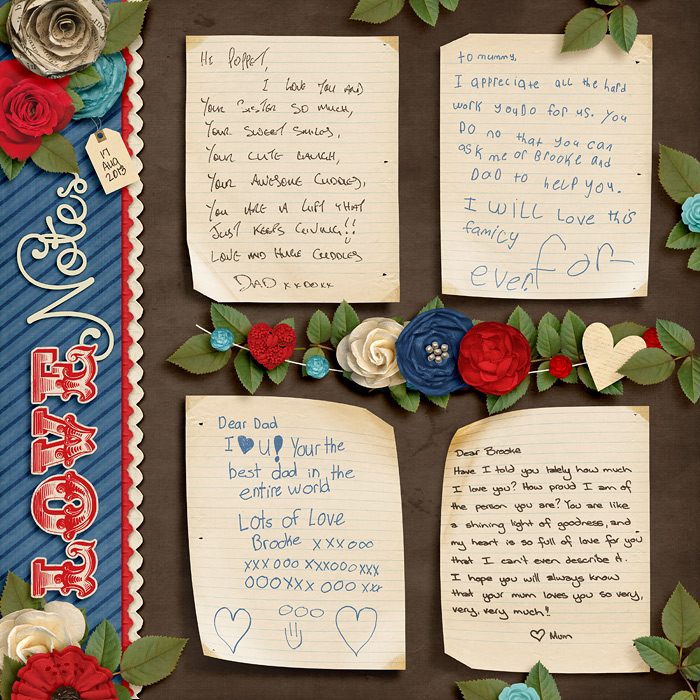 17
Aug
2013
LOVE Notes
Hi Poppet,
I love you and
your sister so much,
your sweet smiles,
your cute laugh,
your awesome cuddles,
you are a gift that
just keeps giving!!
Love and huge cuddles
Dad xxooxx
to mummy,
I appreciate all the hard
work you do for us. You
Do no that you can
ask me or Brooke and
Dad to help you.
I will love this
family
for
ever
Dear Dad
I ♥ U! Your the
best dad in the
entire world
Lots of Love
Brooke xxxooo
xxx ooo xxxoooxxx
oooxxx ooo xxx
Dear Brooke
Have I told you lately how much
I love you? How proud I am of
the person you are? You are like
a shining light of goodness, and
my heart is so full of love for you
that I can't even describe it.
I hope you will always know
that your mum loves you so very,
very, very much!!
♡ Mum